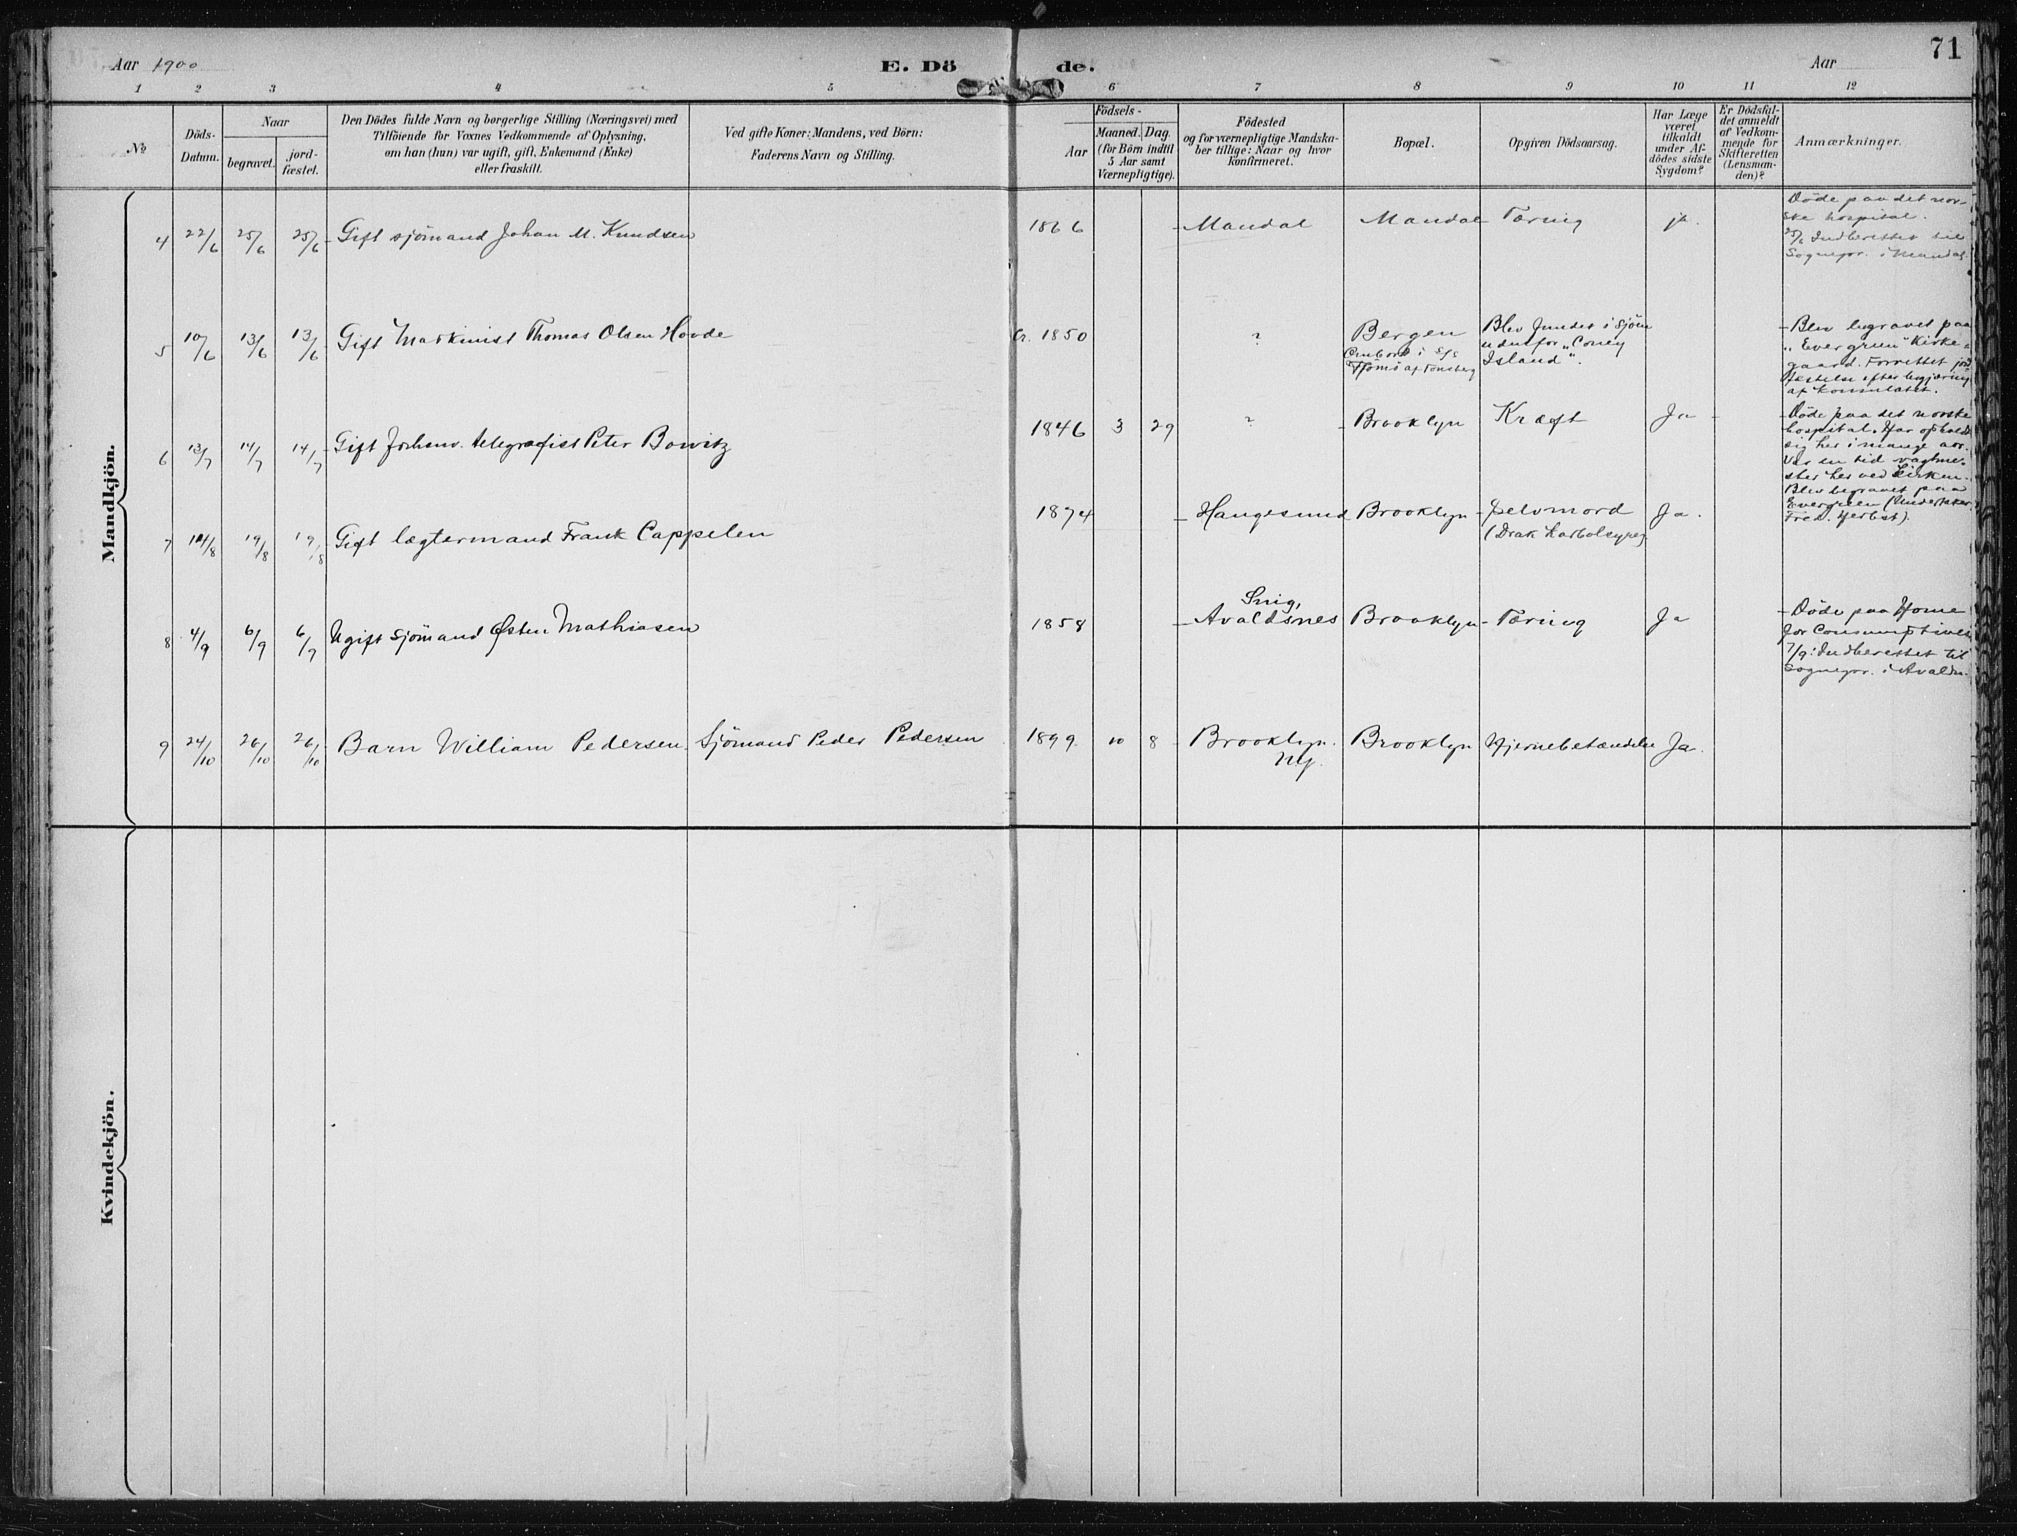 71
Aar 1900
E. Dö de.
Aar
1 2 3 4 5 6 7 8 9 10 11 12
No
Döds-
Datum.
Naar
begravet.
jord-
fæstet.
Den Dödes fulde Navn og borgerlige Stilling (Næringsvei) med
Tilföiende for Voxnes Vedkommende af Oplysning,
om han (hun) var ugift, gift, Enkemand (Enke)
eller fraskilt.
Ved gifte Koner: Mandens, ved Börn:
Faderens Navn og Stilling.
Födsels-
Aar
Maaned. Dag.
(for Börn indtil
5 Aar samt
Værnepligtige).
Födested
og for værnepligtige Mandska-
ber tillige: Naar og hvor
konfirmeret.
Bopæl.
Opgiven Dödsaarsag.
Har Læge
været
tilkaldt
under Af-
dödes sidste
Sygdom?
Er Dödsfal-
det anmeldt
af Vedkom-
mende for
Skifteretten
(Lensman-
den)?
Anmærkninger.
Mandkjön.
4 22/6 25/6 25/6 Gift sjömand Johan M. Knudsen 1866 Mandal Mandal Tæring ja.
Döde paa det nor-
ske hospital.
25/6 Indberettet til
Sognepr. i Mandal
5 10/6 13/6 13/6 Gift Maskinist Thomas Olsen Hovde 1850 ? Bergen
Ombord i S/S
Tjømö af Tønsberg
Blev fundet i Sjöen
udenfor "Coney
Island".
Blev begravet paa
"Evergreen" Kirke-
gaard. Forrettet jord
fæstelse efter begjæring
af Konsulatet.
6 13/7 14/7 14/7 Gift forhenv. telegrafist Peter Bowitz 1846 3 29 ? Brooklyn Kræft Ja
Döde paa det norske
hospital. Har opholdt
sig her i mange aar.
Var en tid vagtme-
ster her ved Kirken.
Blev begravet paa
Evergreen (Undertaker
Fred. Herbst).
7 14/8 19/8 19/8 Gift lægtermand Frank Cappelen 1874 Haugesund Brooklyn Selvmord
(Drak Karbolsyre)
Ja.
8 4/9 6/9 6/9 Ugift sjömand Østen Mathiasen 1858 Snig,
Avaldsnes Brooklyn Tæring Ja
Döde paa Home
for Consumptives
7/9: Indberettet til
Sognepr. i Avaldsn.
9 24/10 26/10 26/10 Barn William Pedersen Sjömand Peder Pedersen 1899 10 8 Brooklyn.
NY.
Brooklyn Hjernebetændelse Ja.
Kvindekjön.